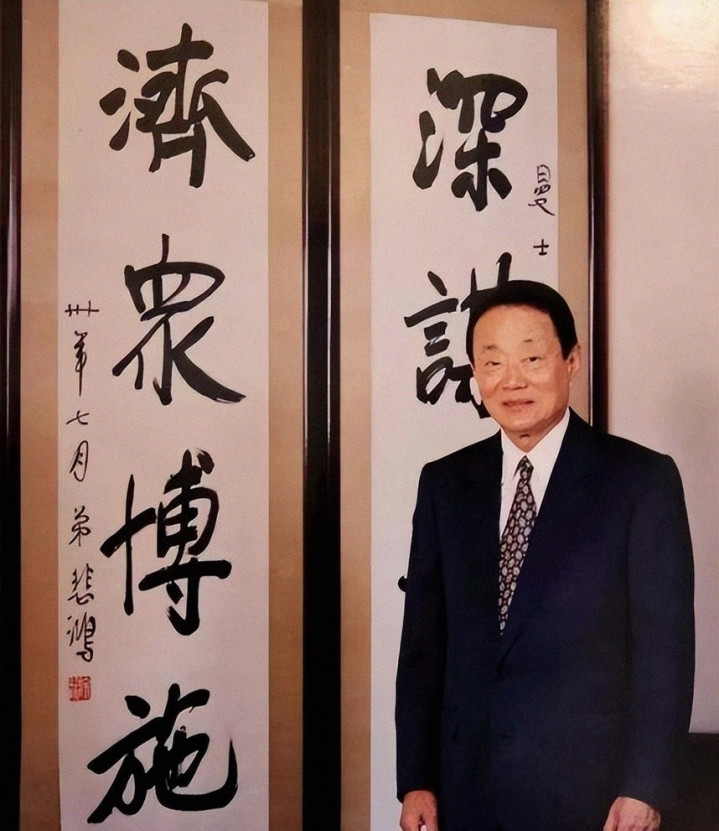 深謀
曼士
濟眾博施
卅年七月 弟悲鴻